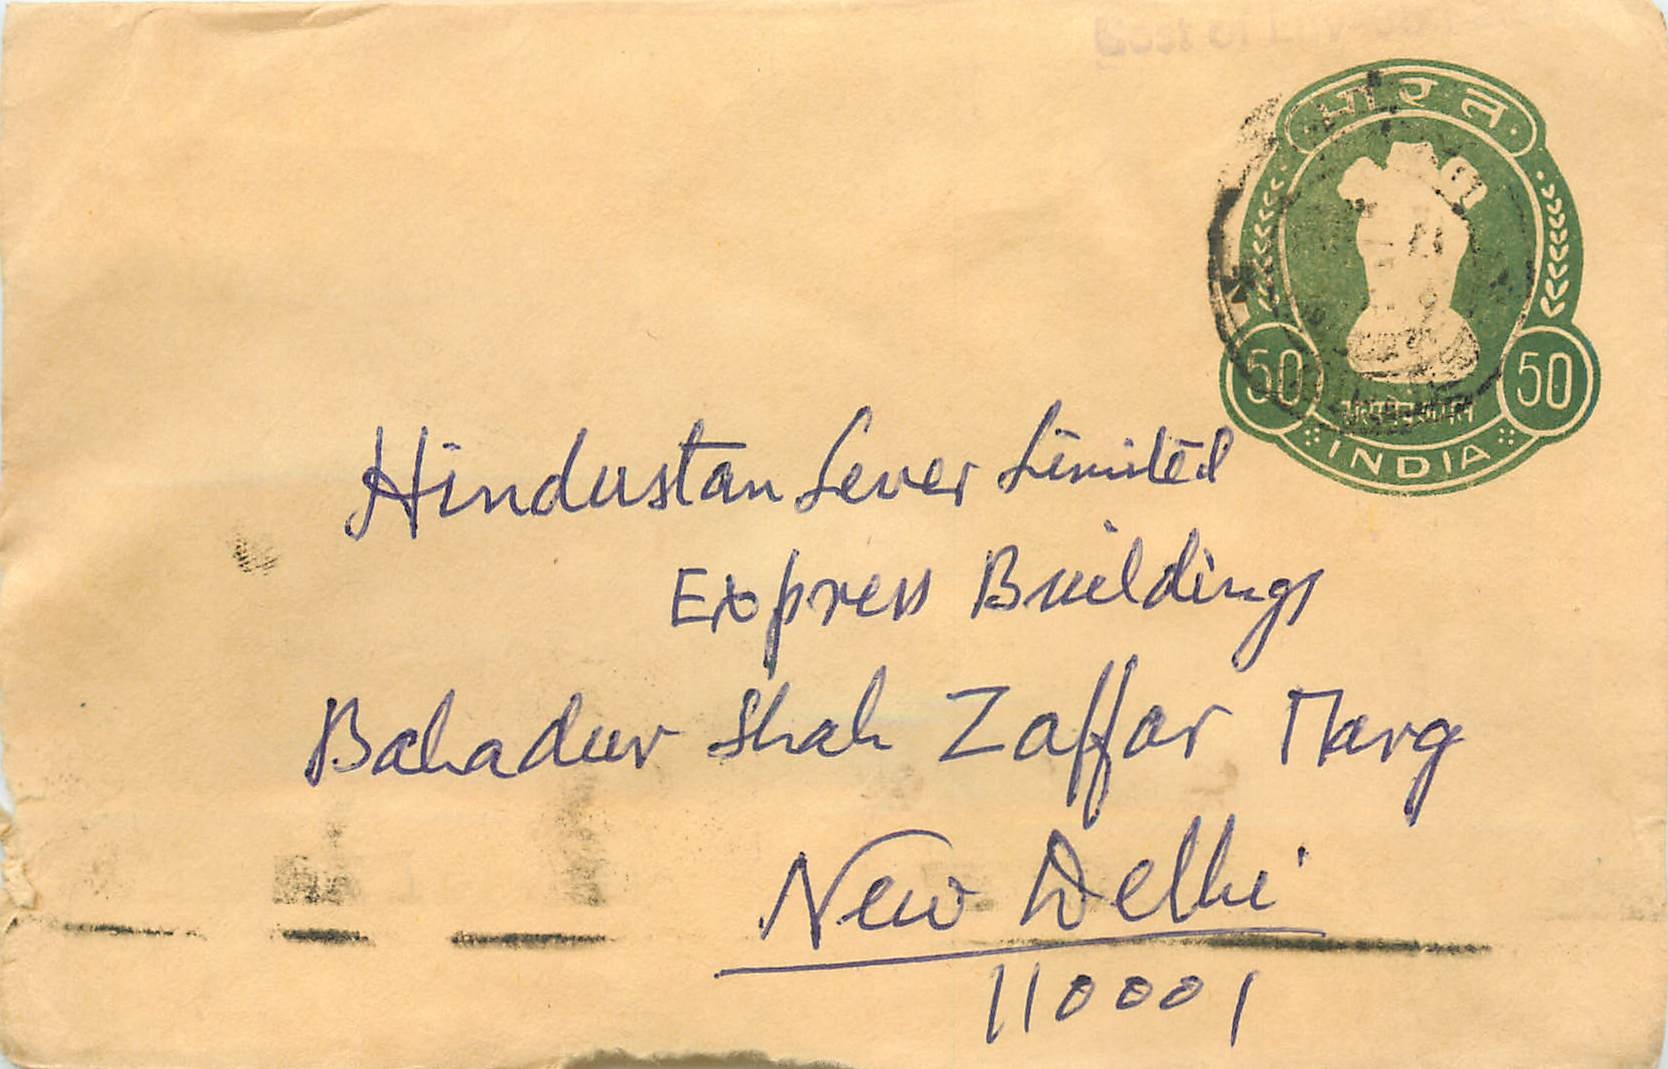 Cost of
भारत
50 50
सत्यमेव जयते
INDIA
Hindustan Lever Limited
Express Buildings
Bahadur Shah Zaffar Marg
New Delhi
110001